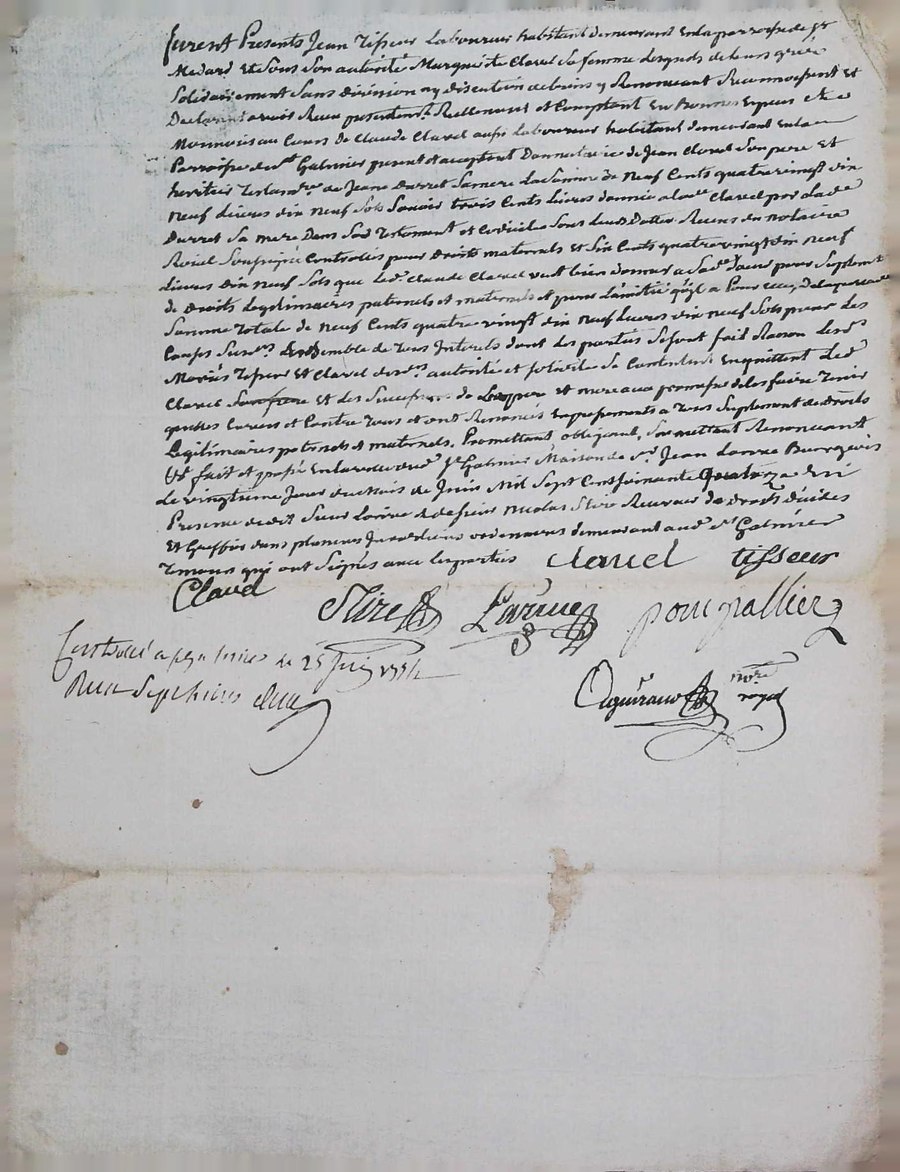 furent Presents Jean Tisseur Laboureur habitant demeurant En la parroisse de st
Medard Et sous son autorité Marguerite Clavel sa femme Lesquels de leurs grés
Solidairement Sans division ny discution de biens y Renonceant Reconnoissent Et
Declarent avoir Receu presentemt. Reellement et Comptant En Bonnes Especes
Monnoie au Cours de Claude Clavel aussy Laboureur habitant demeurant En la
Parroisse de st. Galmier present et acceptant Donnataire de Jean Clavel son pere Et
heritier Testamre. de Jeane Durret Sa mere La Somme de Neuf Cents quatre vingt dix
Neuf Livres dix Neuf Sols Savoir trois Cents Livres donnée a la de. Clavel par lade
Durret Sa mere Dans Son Testament et Codicile Sous Leurs Dattes Receus du notaire
Roial Soussigné Controllés pour Droits maternels Et Six Cents quatre vingt dix neuf
Livres Dix Neuf Sols que led. Claude Clavel veut bien donner a Sade. Soeur pour Suplement
de Droits Legitimaires paternels et maternels Et pour L'amitié qu'il a Pour Elle, De laquelle
Somme Totale de Neuf Cents quatre vingt dix Neuf Livres dix Neuf Sols pour Les
Causes Susds. Ensemble de Tous Interets dont Les parties Se sont fait Raison Lesds
Mariés Tisseur Et Clavel de ds. autorité et Solidité Se Contentent En quittent Led
Clavel Et des Successions de Leurs pere Et mere aux promesse de les faire Tenir
quittes Envers et Contre Tous et ont Renoncés Expressement a Tous Suplement de Droits
Legitimaires paternels et maternels. Promettant obligeant, Soumettant Renonceant
fait et passé En la ville dud st Galmier Maison de sr. Jean Larüe Bourgeois
Le vingtieme Jour du Mois de Juin Mil Sept Cent soixante Quatorze En
Presence dudit Sieur Larüe & de sieur Nicolas Stire Receveur de Droits Réunis
Et Greffier dans plusieurs Juridictions ordinaires demeurant aud st Galmier
Temoins qui ont Signés avec Les parties Clavel tisseur
Clavel
Stire Larüe pourpallier
Controllé a le 25 Juin 1774
Receu Sept livres
nore
royal